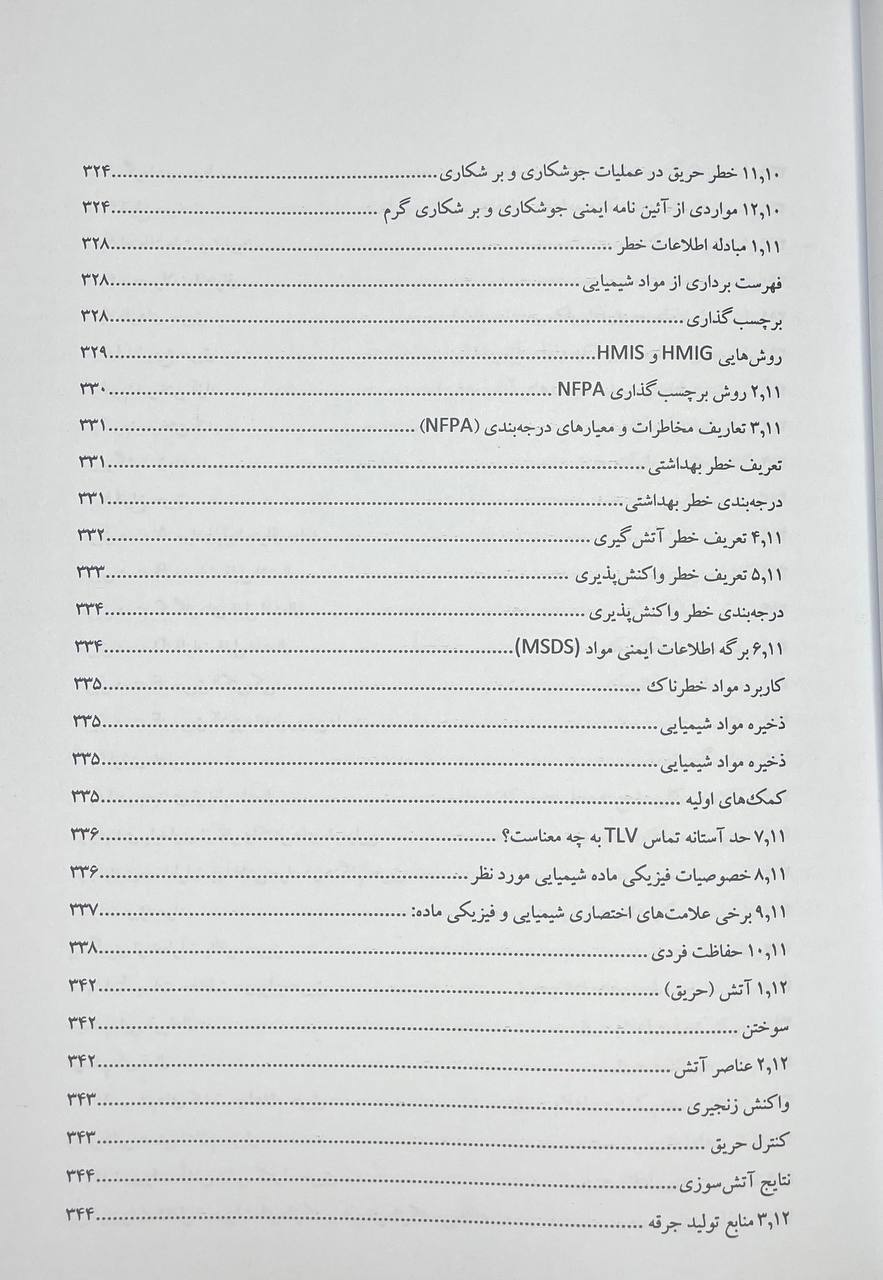 ۱۱,۱۰ خطر حریق در عملیات جوشکاری و بر شکاری................................................۳۲۴
۱۲,۱۰ مواردی از آئین نامه ایمنی جوشکاری و بر شکاری گرم ........................................۳۲۴
۱,۱۱ مبادله اطلاعات خطر ................................................................۳۲۸
فهرست برداری از مواد شیمیایی................................................................۳۲۸
برچسب‌گذاری................................................................۳۲۸
روش‌هایی HMIG و HMIS................................................................۳۲۹
۲,۱۱ روش برچسب‌گذاری NFPA ................................................................۳۳۰
۳,۱۱ تعاریف مخاطرات و معیارهای درجه‌بندی (NFPA) ................................................۳۳۱
تعریف خطر بهداشتی................................................................۳۳۱
درجه‌بندی خطر بهداشتی................................................................۳۳۱
۴,۱۱ تعریف خطر آتش‌گیری................................................................۳۳۲
۵,۱۱ تعریف خطر واکنش‌پذیری ................................................................۳۳۳
درجه‌بندی خطر واکنش‌پذیری ................................................................۳۳۴
۶,۱۱ برگه اطلاعات ایمنی مواد (MSDS)................................................................۳۳۴
کاربرد مواد خطرناک ................................................................۳۳۵
ذخیره مواد شیمیایی................................................................۳۳۵
ذخیره مواد شیمیایی................................................................۳۳۵
کمک‌های اولیه ................................................................۳۳۵
۷,۱۱ حد آستانه تماس TLV به چه معناست؟ ................................................................۳۳۶
۸,۱۱ خصوصیات فیزیکی ماده شیمیایی مورد نظر................................................................۳۳۶
۹,۱۱ برخی علامت‌های اختصاری شیمیایی و فیزیکی ماده: ................................................۳۳۷
۱۰,۱۱ حفاظت فردی ................................................................۳۳۸
۱,۱۲ آتش (حریق) ................................................................۳۴۲
سوختن ................................................................۳۴۲
۲,۱۲ عناصر آتش................................................................۳۴۲
واکنش زنجیری ................................................................۳۴۳
کنترل حریق ................................................................۳۴۳
نتایج آتش‌سوزی................................................................۳۴۴
۳,۱۲ منابع تولید جرقه ................................................................۳۴۴